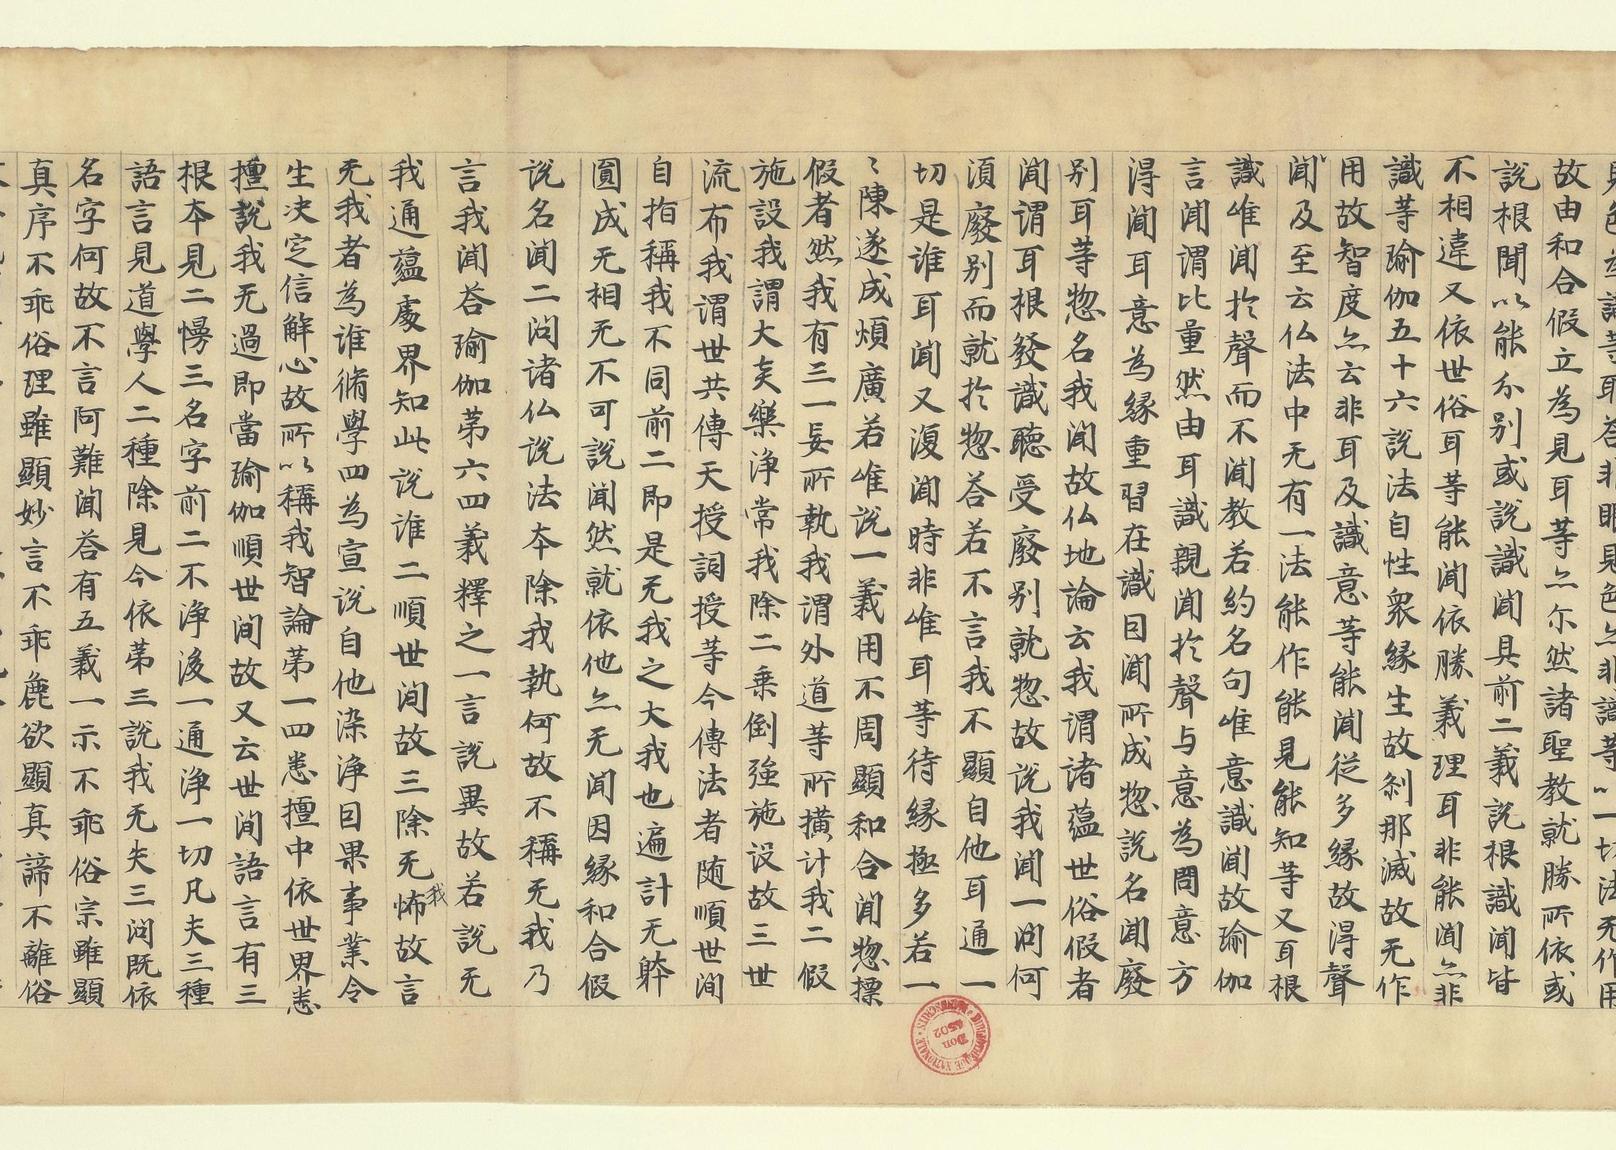 故由和合假立為見耳等亦尔然諸聖教就勝所依或
說根聞以能分別或說識聞具前二義說根識聞皆
不相違又依世俗耳等能聞依勝義理耳非能聞亦非
識等瑜伽五十六說法自性衆緣生故刹那滅故无作
用故智度亦云非耳及識意等能聞從多緣故得聲
聞及至云仏法中无有一法能作能見能知等又耳根
識唯聞於聲而不聞教若約名句唯意識聞故瑜伽
言聞謂比量然由耳識親聞於聲与意為門意方
得聞耳意為緣重習在識因聞所成惣說名聞廢
別耳等惣名我聞故仏地論云我謂諸蘊世俗假者
聞謂耳根發識聽受廢別就惣故說我聞一問何
須廢別而就於惣荅若不言我不顯自他耳通一
切是誰耳聞又復聞時非唯耳等待緣極多若一
〻陳遂成煩廣若唯說一義用不周顯和合聞惣摽
假者然我有三一妄所執我謂外道等所橫計我二假
施設我謂大矣樂淨常我除二乗倒強施设故三世
流布我謂世共傳天授詞授等今傳法者随順世間
自指稱我不同前二即是无我之大我也遍計无躰
圓成无相无不可說聞然就依他亦无聞因緣和合假
說名聞二问諸仏說法本除我執何故不稱无我乃
言我聞荅瑜伽苐六四義釋之一言說異故若說无
我通蘊處界知此說誰二順世间故三除无我怖故言
无我者為誰脩學四為宣说自他染淨因果事業令
生决定信解心故所以稱我智論苐一四悉擅中依世界悉
擅說我无過即當瑜伽順世間故又云世间語言有三
根本見二慢三名字前二不淨後一通淨一切凡夫三種
語言見道學人二種除見今依苐三說我无失三问既依
名字何故不言阿難聞荅有五義一示不乖俗宗雖顯
真序不乖俗理雖顯妙言不乖麁欲顯真諦不離俗